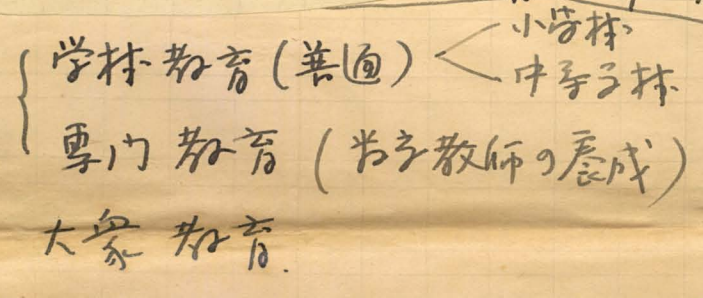 学校教育(普通)
小学校
中等学校
専門教育(教師の養成)
大衆教育.